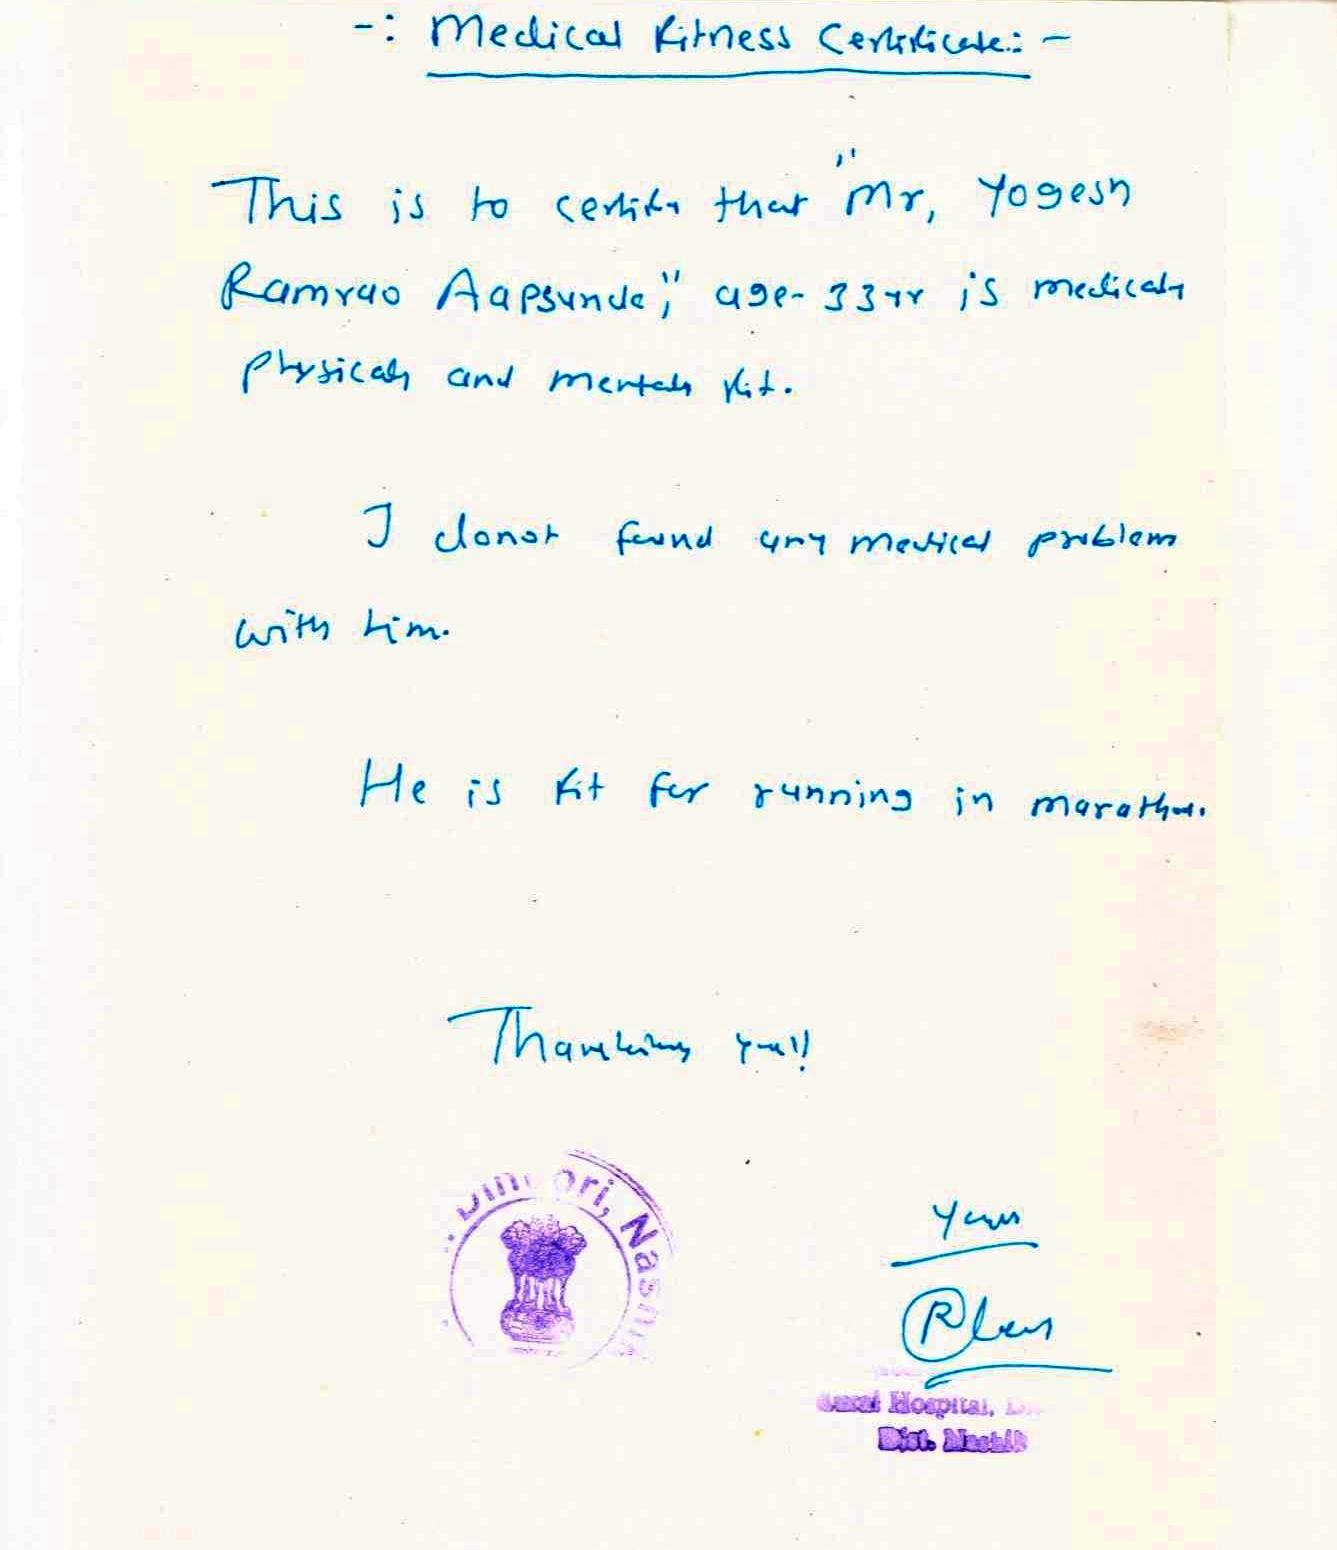 -: Medical Fitness Certificate:-
This is to certify that "Mr, Yogesh
Ramrao Aapsunde," age- 33 yr is medicaly
physicaly and mentaly fit.
I donot found any medical problem
with him.
He is fit for running in marathon.
Thanking you!!
Dindori, Nashik
Yours
Hospital,
Dist. Nashik